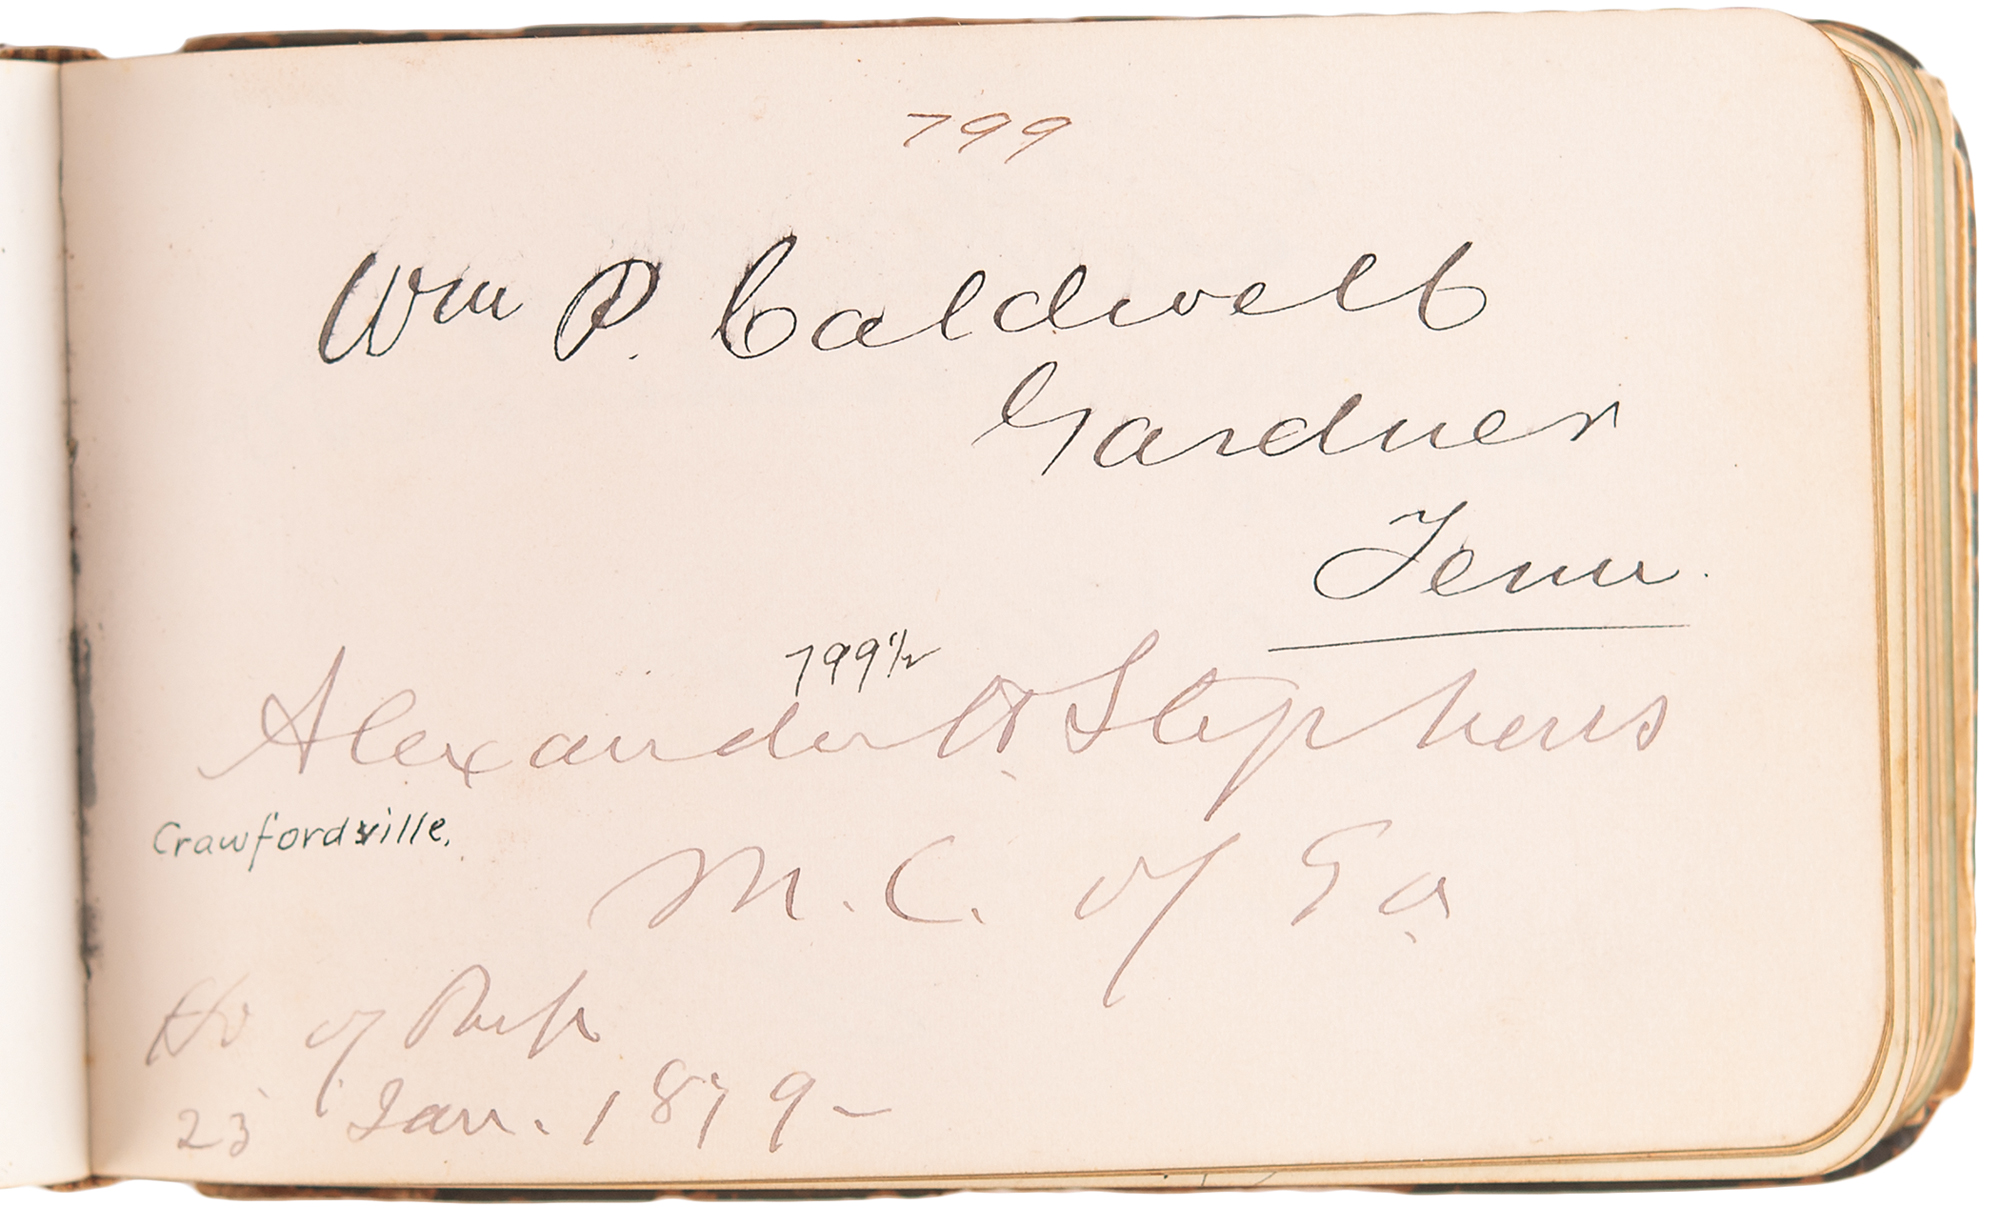 799
Wm P. Caldwell
Gardner
Tenn.
799½
Alexander H. Stephens
Crawfordville.
M. C. of Ga.
Ho of Reps
23 Jan. 1879-